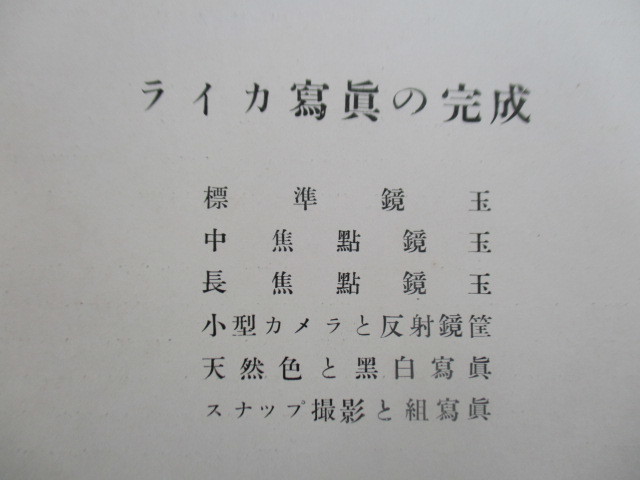 ライカ寫眞の完成
標準鏡玉
中焦點鏡玉
長焦點鏡玉
小型カメラと反射鏡筐
天然色と黑白寫眞
スナップ撮影と組寫眞